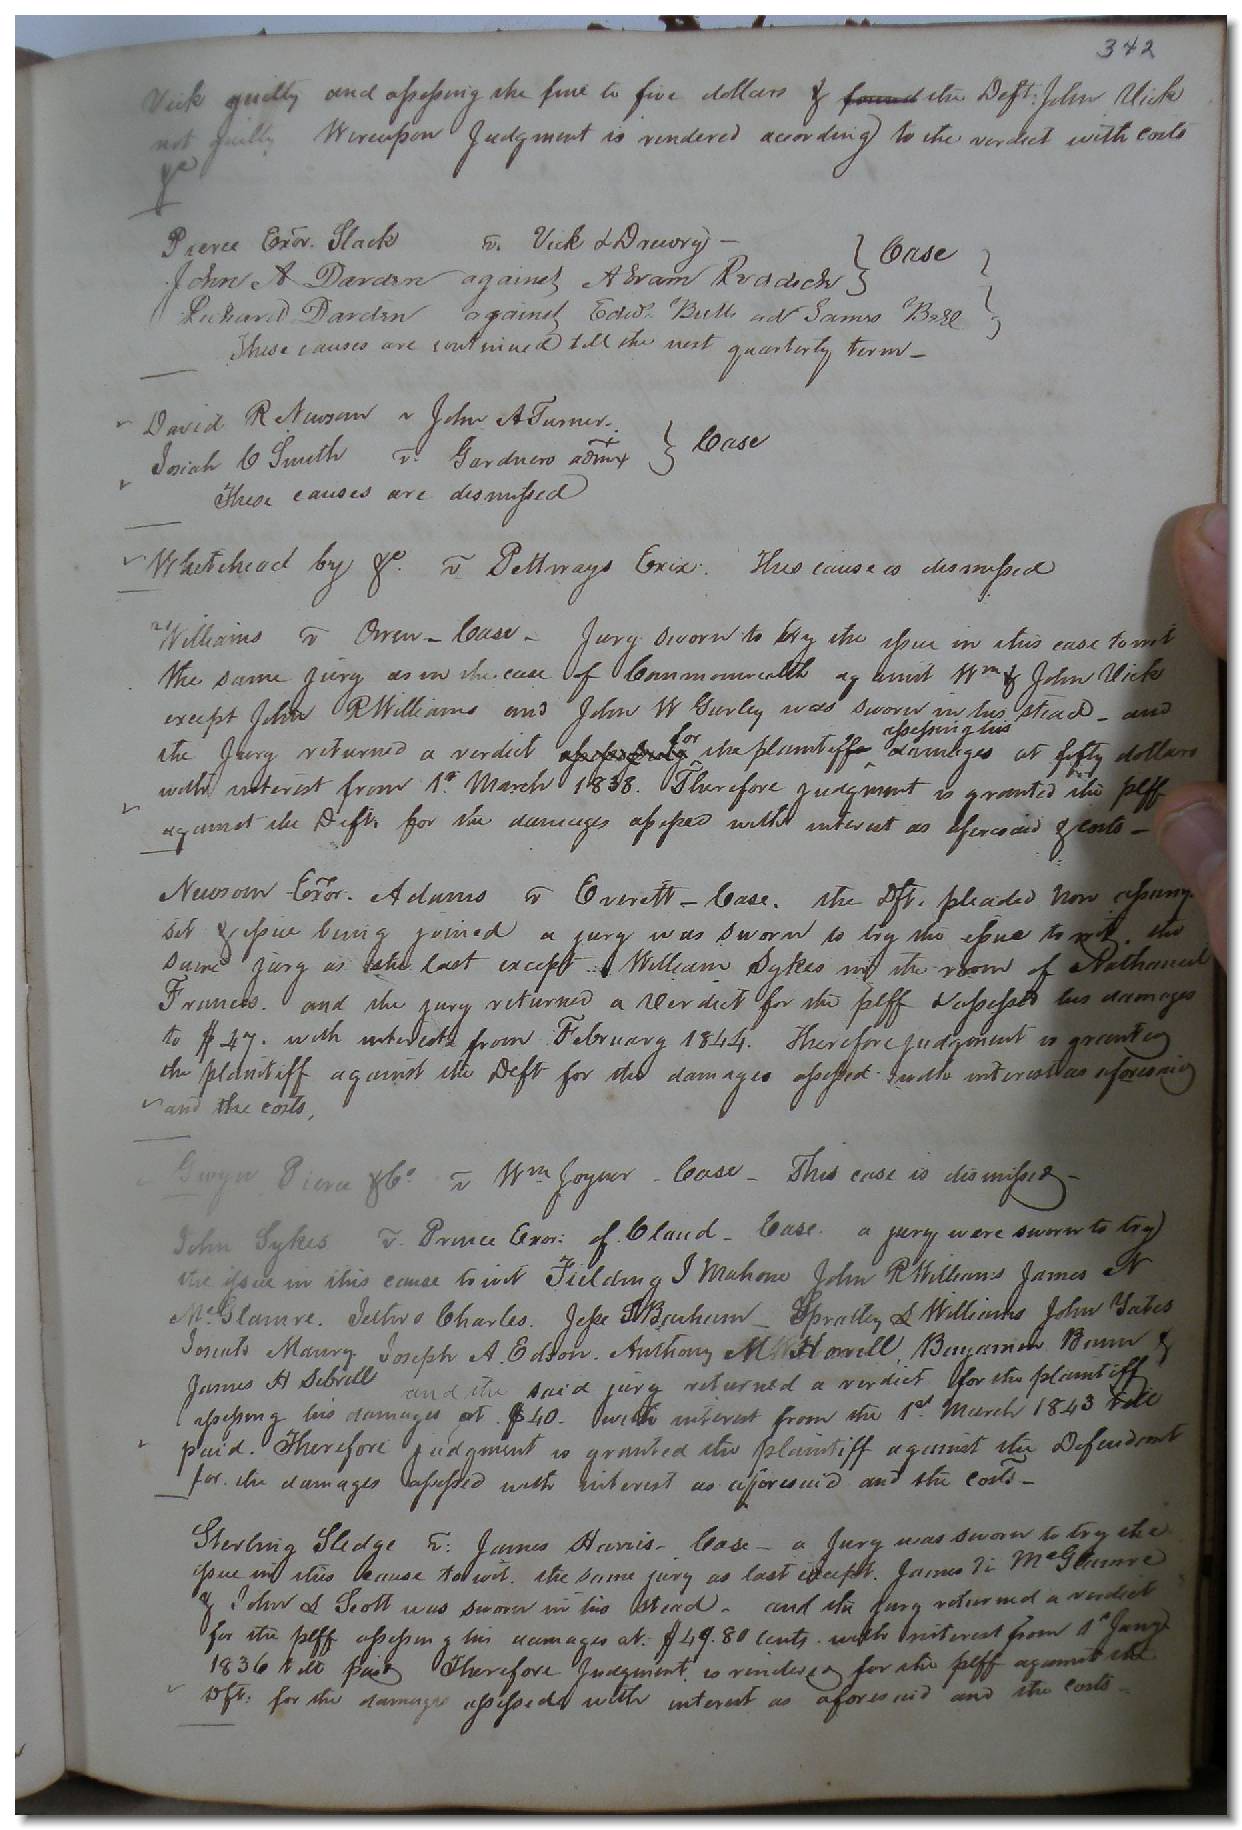 342
Vick guilty and assessing the fine to five dollars & found the Deft: John Vick
not guilty Wereupon Judgment is rendered according to the verdict with costs
&c
Pierce Exor. Slack v. Vick & Drewry –
John A Darden against Abram Reddick } Case
Richard Darden against Edwd. Butts and James Bell
These causes are continued till the next quarterly term –
David R Newsom v John A Turner.
Josiah C Smith v. Gardners admx } Case
These causes are dismissed
Whitehead by &c. v Pettways Exix. This cause is dismissed
Williams v Owen – Case – Jury sworn to try the issue in this case towit
the same jury as in the case of Commonwealth against Wm & John Vick
except John R Williams and John W Gurley was sworn in his stead – and
the Jury returned a verdict for the plaintiff assessing his damages at fifty dollars
with interest from 1st March 1838. Therefore judgment is granted the plff
against the Deft. for the damages assessed with interest as aforesaid & costs –
Newsom Exor. Adams v Everett – Case. the Dft. pleaded Non assump
sit & issue being joined a jury was sworn to try the issue to wit. the
same jury as the last except William Sykes in the room of Nathaniel
Francis. and the jury returned a verdict for the plff & assessed his damages
to $47. with interest from February 1844. Therefore judgment is granted
the plaintiff against the Deft for the damages assessed with interest as aforesaid
and the costs,
Gwyn Pierce & Co v Wm Joyner – Case – This case is dismissed –
John Sykes v. Prince Exor: of Claud – Case. a jury were sworn to try
the issue in this cause to wit Fielding J Mahone John R Williams James N
McGlamre. Jethro Charles. Jesse T Barham – Spratley & Williams John Yates
Maury Joseph A. Edson. Anthony M Howell Benjamin Bunn &
James H Sebrell and the said jury returned a verdict for the plaintiff
assessing his damages at $40. with interest from the 1st March 1843 till
paid. Therefore judgment is granted the plaintiff against the Defendant
for the damages assessed with interest as aforesaid and the costs –
Sterling Sledge v: James Harris – Case – a Jury was sworn to try the
issue in this cause to wit. the same jury as last except. James N McGlamre
& John L Scott was sworn in his stead – and the jury returned a verdict
for the plff assessing his damages at $49.80 cents with interest from 1st Jany
1836 till paid Therefore Judgment is rendered for the plff against the
Dft: for the damages assessed with interest as aforesaid and the costs –